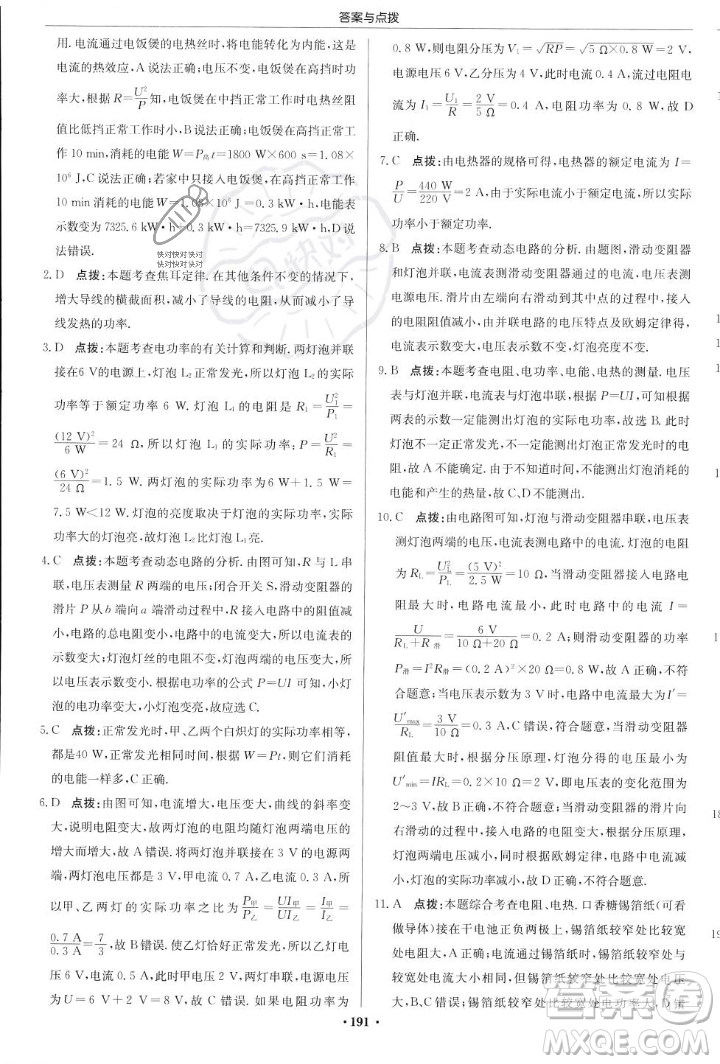 答案与点拨
用. 电流通过电饭煲的电热丝时, 将电能转化为内能, 这是
电流的热效应, A 说法正确; 电压不变, 电饭煲在高挡功
率大, 根据 R=U²/P 知, 电饭煲在中挡正常工作时电热丝阻
值比低挡正常工作时小, B 说法正确; 电饭煲在高挡正常
工作 10 min, 消耗的电能 W=P高t=1800 W×600 s=1.08×
10⁶ J, C 说法正确; 若家中只接入电饭煲, 在高挡正常工作
10 min 消耗的电能 W=1.08×10⁶ J=0.3 kW·h, 电能
表示数变为 7325.6 kW·h+0.3 kW·h=7325.9 kW·h, D 说
法错误.
快对快对快对
快对快对快对
2. D 点拨: 本题考查焦耳定律. 在其他条件不变的情况下,
增大导线的横截面积, 减小了导线的电阻, 从而减小了导
线发热的功率.
3. D 点拨: 本题考查电功率的有关计算和判断. 两灯泡并联
接在6 V的电源上时, 灯泡 L₂ 正常发光, 所以灯泡 L₂ 的实际
功率等于额定功率 6 W. 灯泡 L₁ 的电阻是 R₁=U₁²/P₁=
(12 V)²/6 W=24 Ω, 所以灯泡 L₁ 的实际功率 P=U²/R₁=
(6 V)²/24 Ω=1.5 W. 两灯泡的实际总功率为 6 W+1.5 W=
7.5 W<12 W. 灯泡的亮度取决于灯泡的实际功率, 实际
功率大的灯泡亮, 故 L₂ 比 L₁ 亮.
4. C 点拨: 本题考查动态电路的分析. 由图可知, R 与 L 串
联, 电压表测量 R 两端的电压; 闭合开关 S, 滑动变阻器的
滑片 P 从 b 端向 a 端滑动过程中, R 接入电路中的阻值减
小, 电路的总电阻变小, 电路中的电流变大, 所以电流表的
示数变大; 灯泡灯丝的电阻不变, 灯泡两端的电压变大, 电压
表示数变小. 根据电功率的公式 P=UI 可知, 小灯
泡的功率变大, 小灯泡变亮, 故应选 C.
5. C 点拨: 正常发光时, 甲、乙两个白炽灯的实际功率相等,
都是40 W, 正常发光相同时间, 根据 W=Pt, 则它们消耗
的电能一样大, C 正确.
6. D 点拨: 由图可知, 电流增大, 电压变大, 曲线的斜率变
大, 说明电阻变大, 故两灯泡的电阻均随灯泡两端电压的
增大而增大, 故 A 错误. 将两灯泡并联接在 3 V 的电源两
端, 灯泡两端电压为 3 V, 甲电流 0.7 A, 乙电流 0.3 A,
所以甲、乙两灯的实际功率之比为 P甲/P乙=UI甲/UI乙=I甲/I乙=
0.7 A/0.3 A=7/3, 故 B 错误. 将两灯泡串联, 电流 0.4 A, 乙灯电
压 6 V, 电流为 0.4 A, 此时甲电压 2 V, 所以电源电压为
U=6 V+2 V=8 V, 故 C 错误. 如果电阻功率为
0.8 W, 则电阻分压为 V₁=√RP=√5 Ω×0.8 W=2 V,
电源电压 6 V, 乙分压 4 V, 此时电流 0.4 A, 流过电阻电
流为 I₁=U₁/R=2 V/5 Ω=0.4 A, 电阻功率为 0.8 W, 故 D
正确.
7. C 点拨: 由电热器的规格可得, 电热器的额定电流为 I=
P/U=440 W/220 V=2 A, 由于实际电流小于额定电流, 所以实际
功率小于额定功率.
8. B 点拨: 本题考查动态电路的分析. 由图知, 灯泡与滑动变
阻器并联, 电流表测滑动变阻器通过的电流, 电压表测
电源的电压. 滑片由左端向右端滑动的过程中, 接入的
电阻变大, 由并联电路电压的特点及欧姆定律知, 电压表
示数不变, 电流表示数变小, 灯泡亮度不变.
9. B 点拨: 本题考查电阻、电功率、电能、电热的测量. 电压
表与灯泡并联, 电流表与灯泡串联, 根据 P=UI, 可知根据
两表的示数一定能测出灯泡的实际电功率, 故选 B. 由于此
时灯泡不一定正常发光, 不一定能测出灯泡正常发光时的电
阻, 故 A 不能确定. 由于不知道时间, 不能测出灯泡消耗的
电能和产生的热量, 故 C、D 不能确定.
10. C 点拨: 由电路图可知, 灯泡与滑动变阻器串联, 电压表
测灯泡两端的电压, 电流表测电路中的电流, 灯泡的电
阻 RL=UL²/PL=(5 V)²/2.5 W=10 Ω, 当滑动变阻器接入电路电阻
最大时, 电路电流最小, 此时电路中的电流 I=
U/(RL+R滑)=6 V/(10 Ω+20 Ω)=0.2 A; 则滑动变阻器的功率
P滑=I²R滑=(0.2 A)²×20 Ω=0.8 W, A 正确, 不符合题
意; 当电压表示数为 3 V 时, 电路中电流最大, I′=
U′max/RL=3 V/10 Ω=0.3 A, C 错误, 符合题意; 滑动变阻器阻值
最大时, 根据分压原理, 灯泡分担电压最小, 为
U′min=IRL=0.2×10 Ω=2 V, 所以电压表的变化范围为
2～3 V, B 正确, 不符合题意; 滑动变阻器的滑片向
右滑动的过程中, 接入电路的电阻变大, 电路的总电
阻变大, 由于电源电压不变, 根据欧姆定律, 电路中电流
减小, 灯泡的实际功率变小, D 正确, 不符合题意.
11. A 点拨: 本题综合考查电阻、电热. 口香糖锡箔纸(可看
做导体)接在干电池正负极两端, 锡箔纸较窄处比较
宽处电阻大, A 正确. 由于锡箔纸较窄处与较宽处串
联, B、C 错误. 但锡箔纸较窄处电阻大, 根据 P=I²R
可知, 锡箔纸较窄处比较宽处电功率大, D 错
· 191 ·